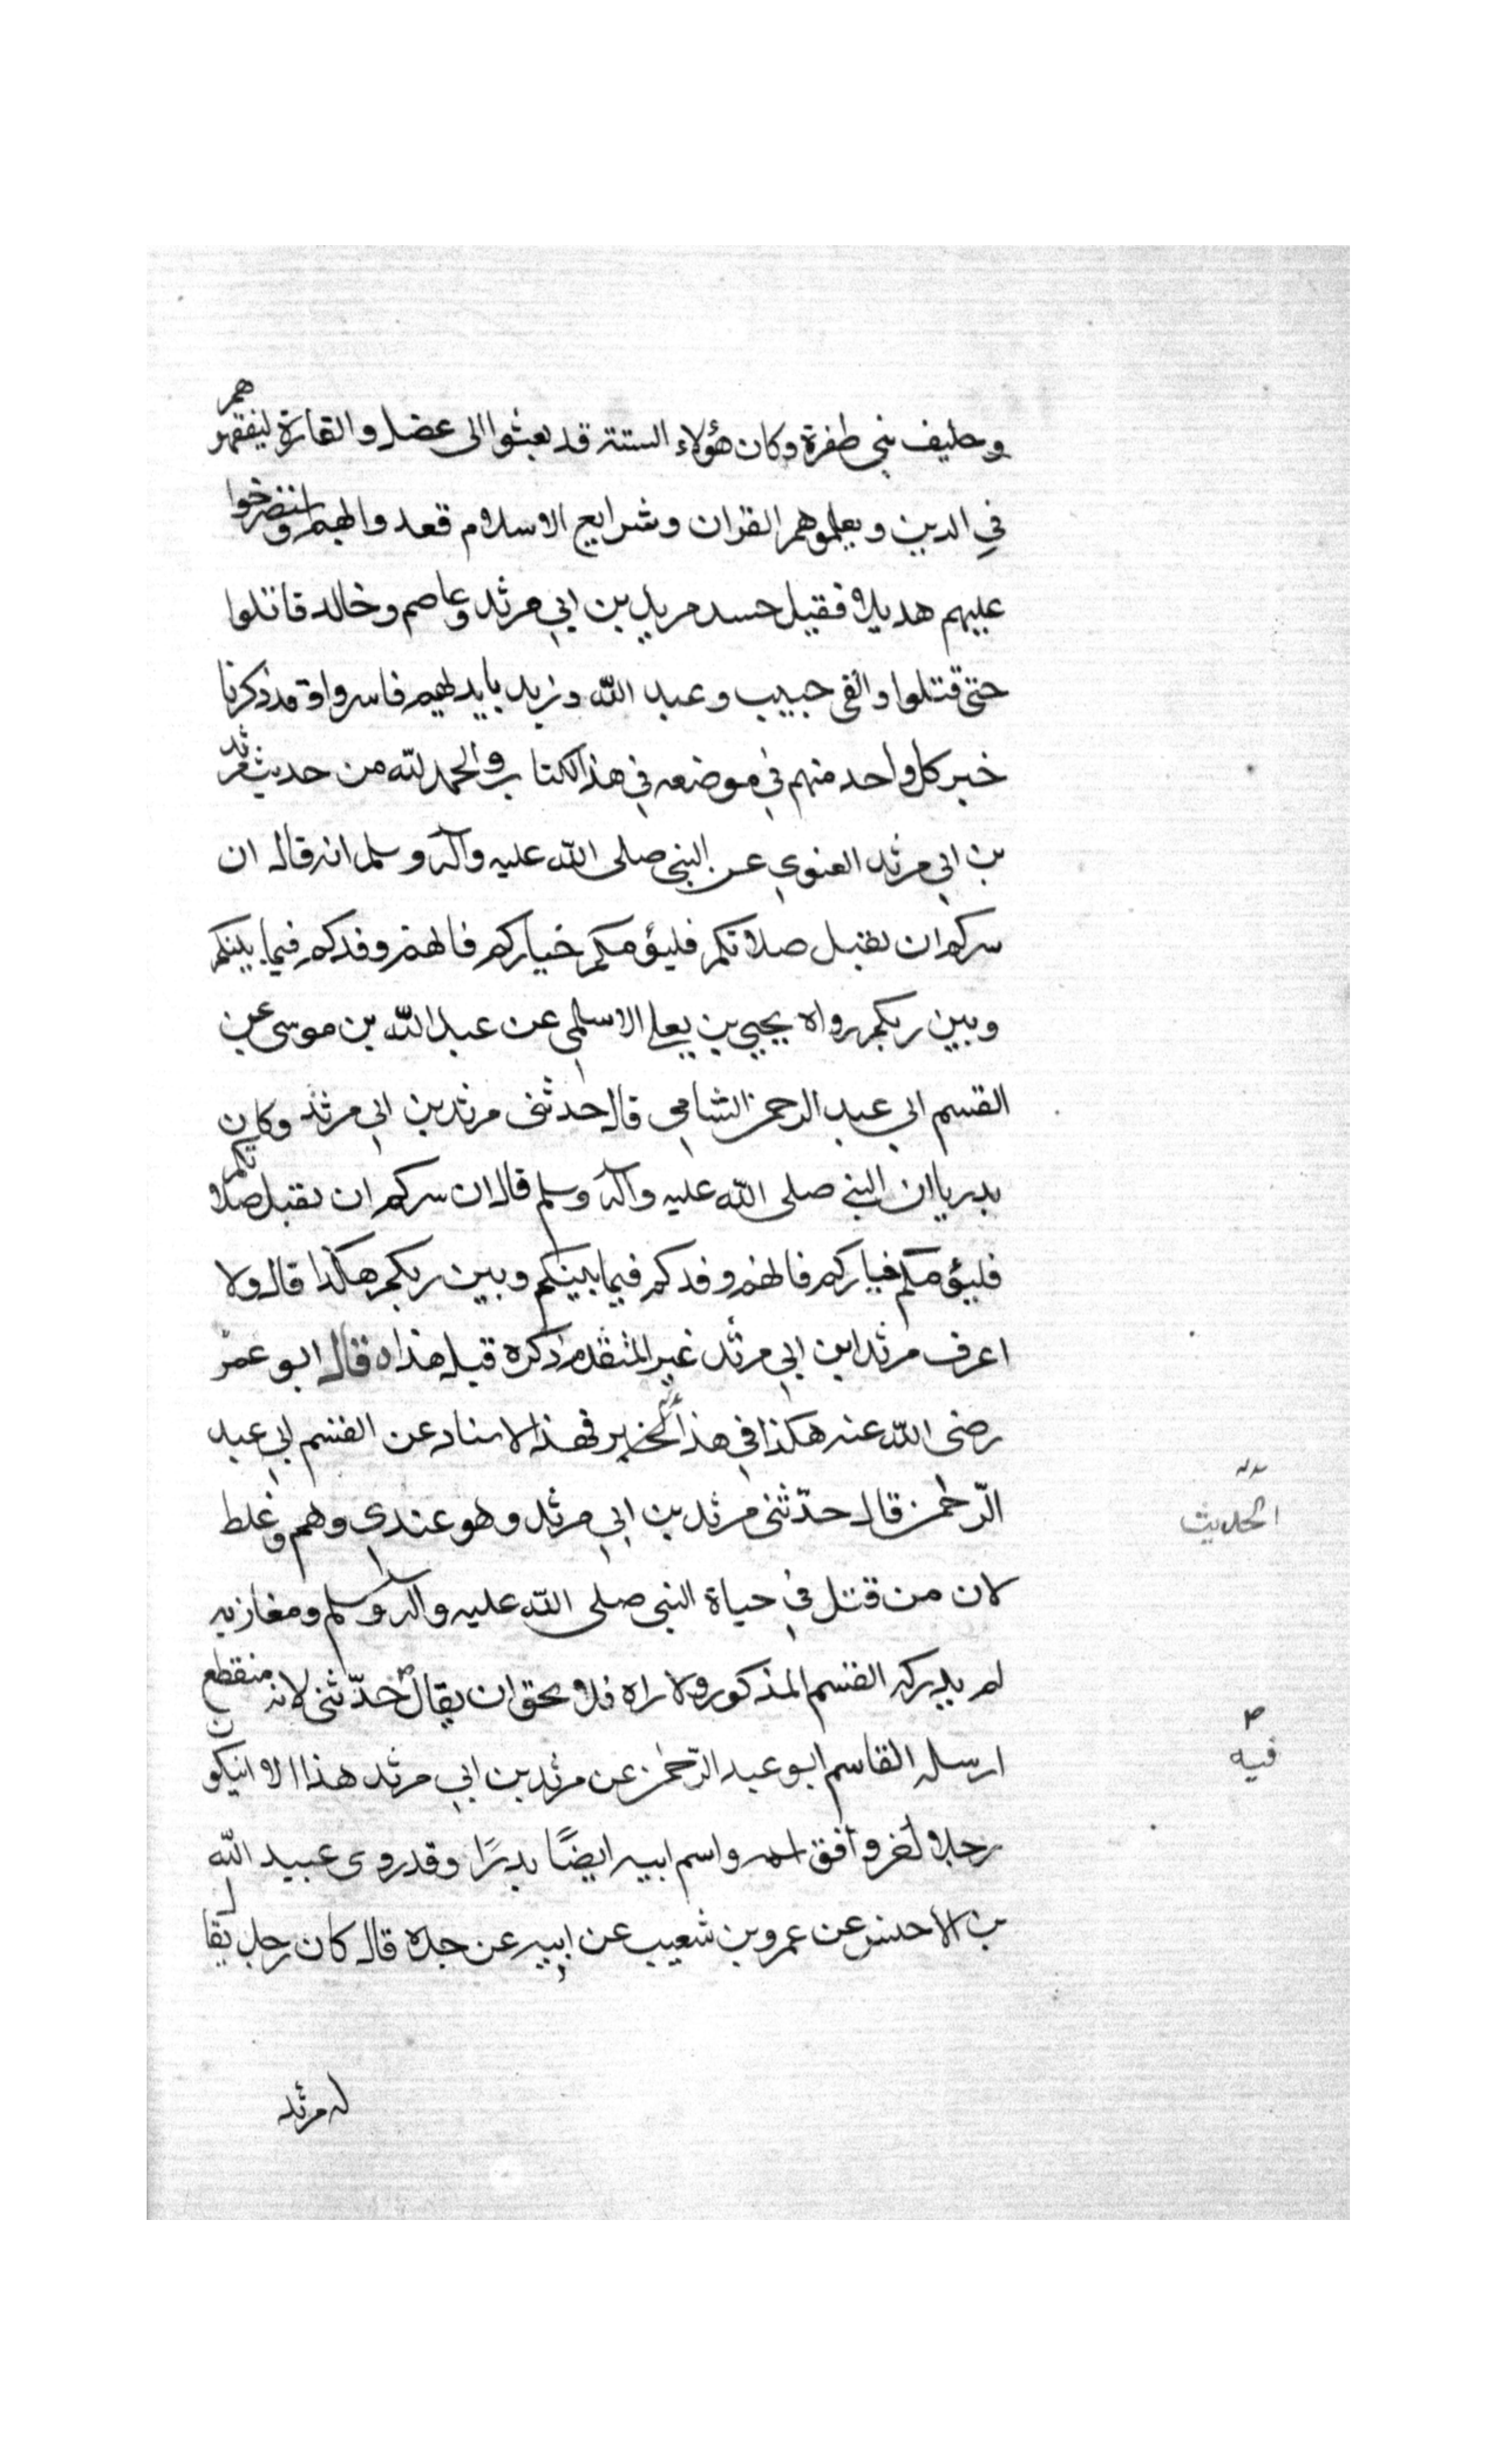 وحليف بني ظفرة وكان هؤلاء الستة قد بعثوا الى عضل والقارة ليفقهوهم
في الدين ويعلموهم القران وشرايع الاسلام فغدوا بهم واستصرخوا
عليهم هديلا فقيل حسد مريد بن ابي مرثد وعاصم وخالد قاتلوا
حتى قتلوا والقى خبيب وعبد الله وزيد بايديهم فاسروا وقد ذكرنا
خبر كل واحد منهم في موضعه في هذا الكتاب والحمد لله من حديث مرثد
بن ابي مرثد الغنوي عن النبي صلى الله عليه وآله وسلم انه قال ان
سركم ان تقبل صلاتكم فليؤمكم خياركم فانهم وفدكم فيما بينكم
وبين ربكم رواه يحيي بن يعلى الاسلمي عن عبد الله بن موسى عن
القسم ابي عبد الرحمن الشامي قال حدثنى مرثد بن ابي مرثد وكان
بدريا ان النبي صلى الله عليه وآله وسلم قال ان سركم ان تقبل صلاتكم
فليؤمكم خياركم فانهم وفدكم فيما بينكم وبين ربكم هكذا قال ولا
اعرف مرثد ابن ابي مرثد غير المتقدم ذكره قبل هذا ه قال ابو عمر
رضى الله عنه هكذا في هذا الخبر في هذا الاسناد عن القسم ابي عبد
الرّحمن قال حدّثنى مرثد بن ابي مرثد وهو عندي وهم وغلط
الحديث
لان من قتل في حياة النبي صلى الله عليه وآله وسلم ومغازيه
لم يدركه القسم المذكور ولا راه فلا يحق ان يقال حدّثنى لانه منقطع
فيه
ارسله القاسم ابو عبد الرّحمن عن مرثد بن ابي مرثد هذا الا ان يكون
رجلا آخر وافق اسمه واسم ابيه ايضًا بدرًا وقد روى عبيد الله
بن الاخنس عن عمرو بن شعيب عن ابيه عن جده قال كان رجل يقال
له مرثد